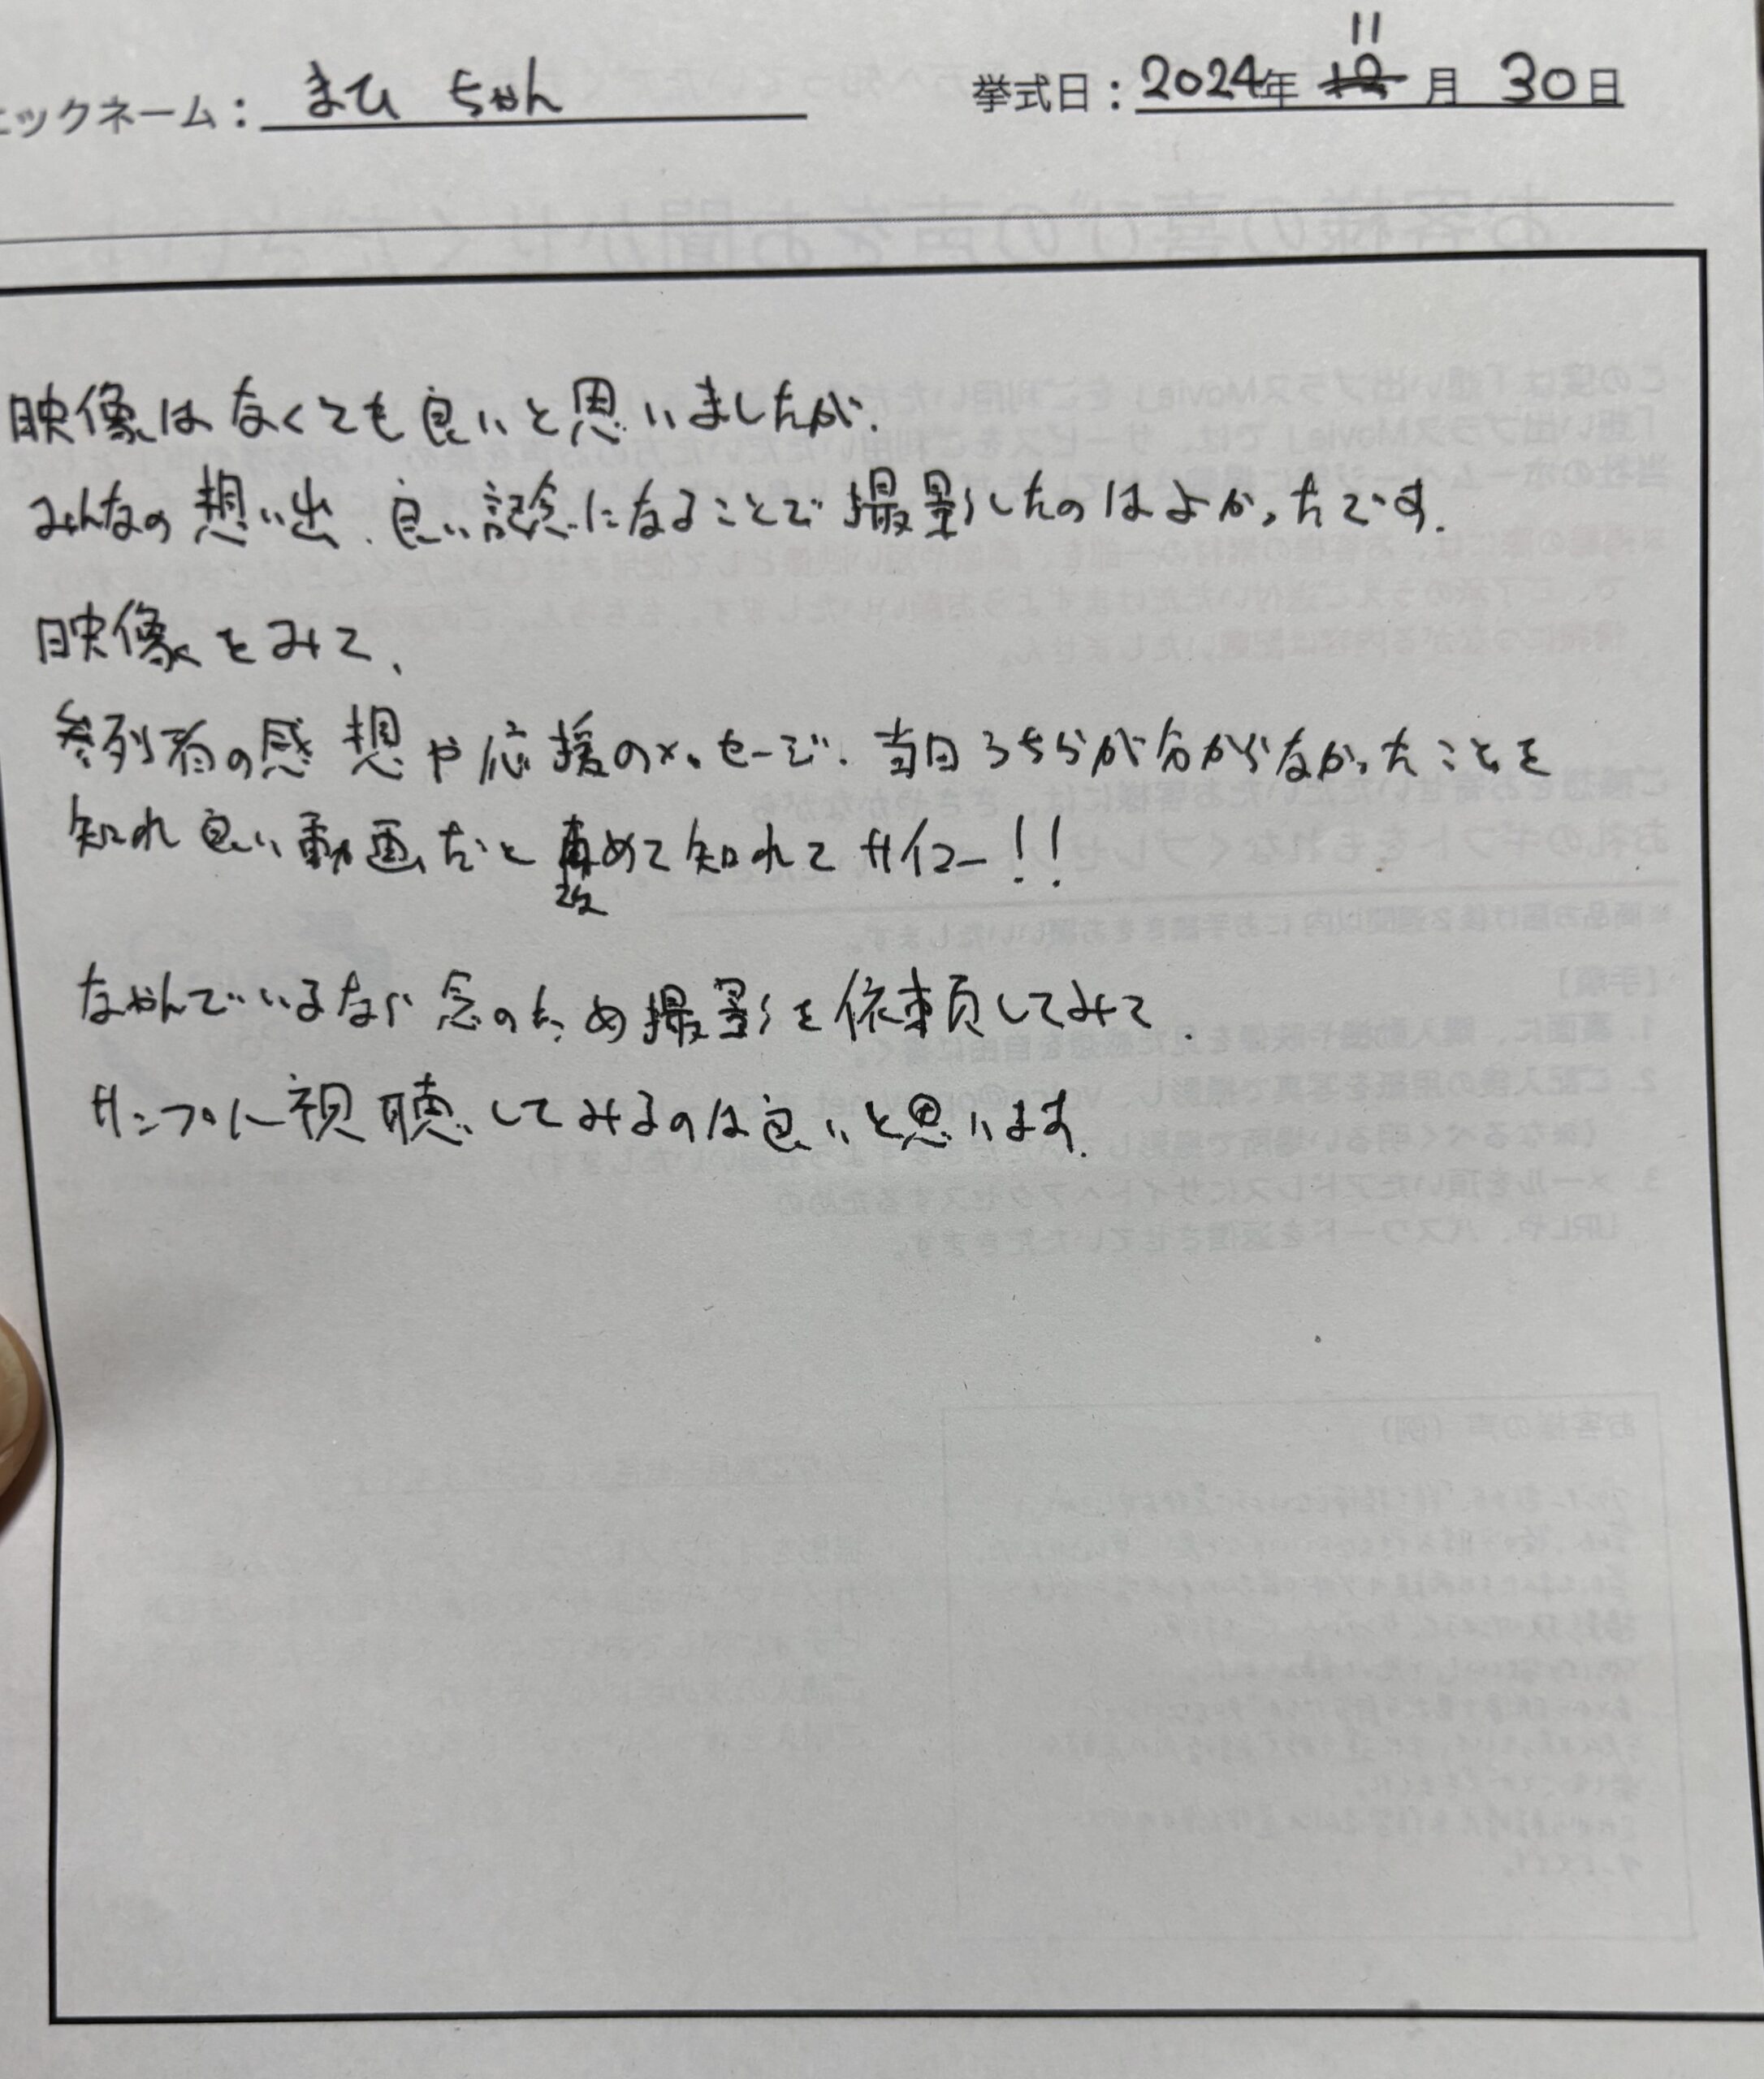 ニックネーム： まひちゃん
挙式日：2024年 11月 30日
映像はなくても良いと思いましたが、
みんなの想い出、良い記念になることで撮影したのはよかったです。
映像をみて、
参列者の感想や応援のメッセージ、当日うちらが分からなかったことを
知れ良い動画だと改めて知れてサイコー!!
なやんでいるなら念のため撮影を依頼してみて、
サンプルに視聴してみるのは良いと思います。